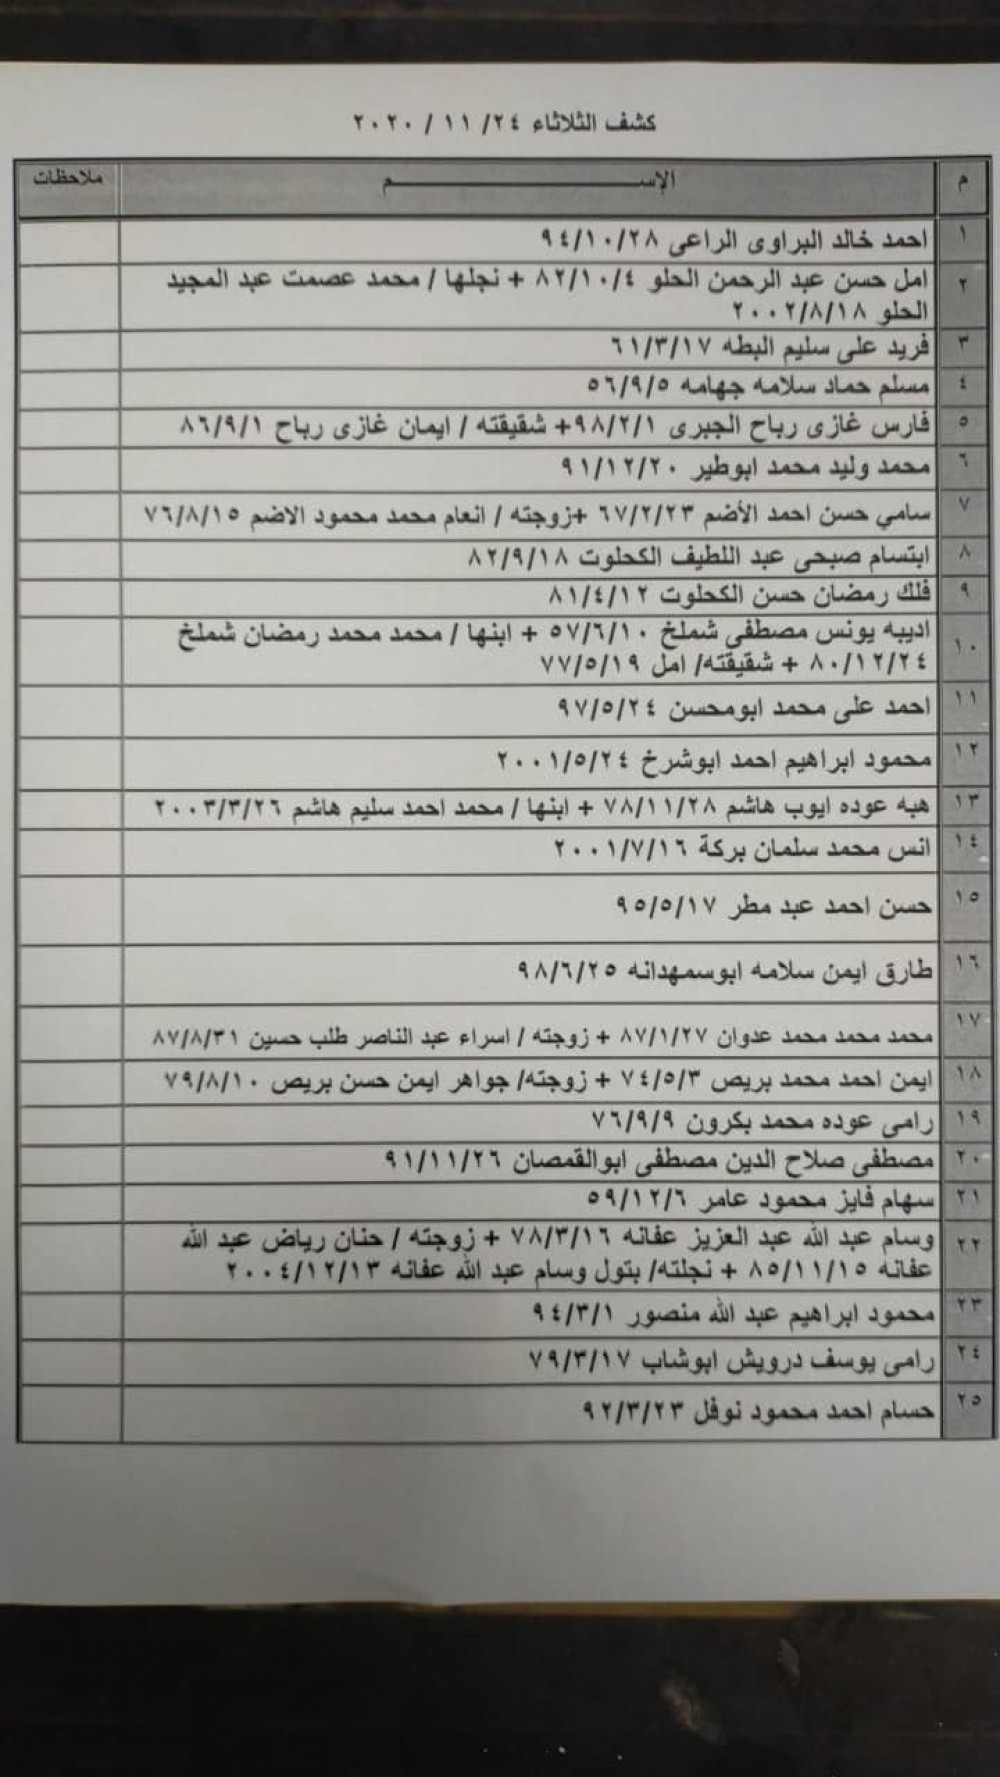 كشف الثلاثاء ٢٤/ ١١ / ٢٠٢٠
م الإســـــــــــم ملاحظات
١ احمد خالد البراوى الراعى ٩٤/١٠/٢٨
٢ امل حسن عبد الرحمن الحلو ٨٢/١٠/٤ + نجلها / محمد عصمت عبد المجيد
الحلو ٢٠٠٢/٨/١٨
٣ فريد على سليم البطه ٦١/٣/١٧
٤ مسلم حماد سلامه جهامه ٥٦/٩/٥
٥ فارس غازى رباح الجبرى ٩٨/٢/١+ شقيقته / ايمان غازى رباح ٨٦/٩/١
٦ محمد وليد محمد ابوطير ٩١/١٢/٢٠
٧ سامي حسن احمد الأضم ٦٧/٢/٢٣ +زوجته / انعام محمد محمود الاضم ٧٦/٨/١٥
٨ ابتسام صبحى عبد اللطيف الكحلوت ٨٢/٩/١٨
٩ فلك رمضان حسن الكحلوت ٨١/٤/١٢
١٠ اديبه يونس مصطفى شملخ ٥٧/٦/١٠ + ابنها / محمد محمد رمضان شملخ
٨٠/١٢/٢٤ + شقيقته/ امل ٧٧/٥/١٩
١١ احمد على محمد ابومحسن ٩٧/٥/٢٤
١٢ محمود ابراهيم احمد ابوشرخ ٢٠٠١/٥/٢٤
١٣ هبه عوده ايوب هاشم ٧٨/١١/٢٨ + ابنها / محمد احمد سليم هاشم ٢٠٠٣/٣/٢٦
١٤ انس محمد سلمان بركة ٢٠٠١/٧/١٦
١٥ حسن احمد عبد مطر ٩٥/٥/١٧
١٦ طارق ايمن سلامه ابوسمهدانه ٩٨/٦/٢٥
١٧ محمد محمد محمد عدوان ٨٧/١/٢٧ + زوجته / اسراء عبد الناصر طلب حسين ٨٧/٨/٣١
١٨ ايمن احمد محمد بريص ٧٤/٥/٣ + زوجته/ جواهر ايمن حسن بريص ٧٩/٨/١٠
١٩ رامى عوده محمد بكرون ٧٦/٩/٩
٢٠ مصطفى صلاح الدين مصطفى ابوالقمصان ٩١/١١/٢٦
٢١ سهام فايز محمود عامر ٥٩/١٢/٦
٢٢ وسام عبد الله عبد العزيز عفانه ٧٨/٣/١٦ + زوجته / حنان رياض عبد الله
عفانه ٨٥/١١/١٥ + نجلته/ بتول وسام عبد الله عفانه ٢٠٠٤/١٢/١٣
٢٣ محمود ابراهيم عبد الله منصور ٩٤/٣/١
٢٤ رامى يوسف درويش ابوشاب ٧٩/٣/١٧
٢٥ حسام احمد محمود نوفل ٩٢/٣/٢٣